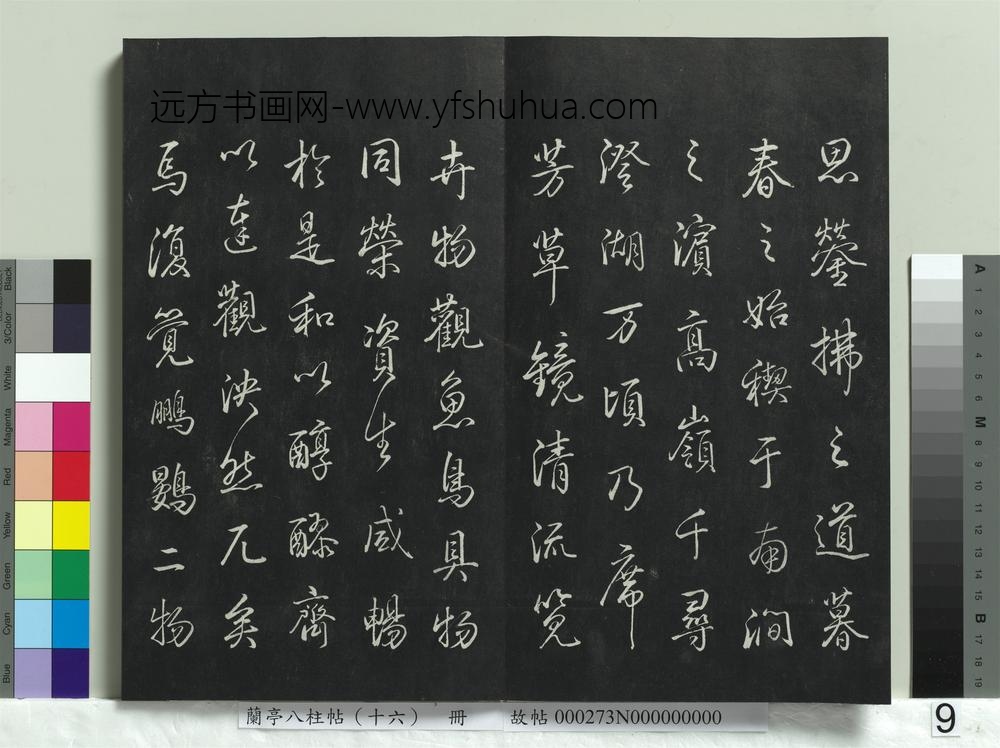 远方书画网-www.yfshuhua.com
思鎣拂之道暮
春之始稧于南澗
之濱高嶺千尋
澄湖万頃乃席
芳草鏡清流覽
卉物觀魚鳥具物
同榮資生咸暢
於是和以醇醪齊
以達觀泱然兀矣
焉復覺鵬鷃二物
蘭亭八柱帖(十六) 冊 故帖 000273N000000000
9
Black
3/Color
White
Magenta
Red
Yellow
Green
Cyan
Blue
A
1
2
3
4
5
6
M
8
9
10
11
12
13
14
15
B
17
18
19